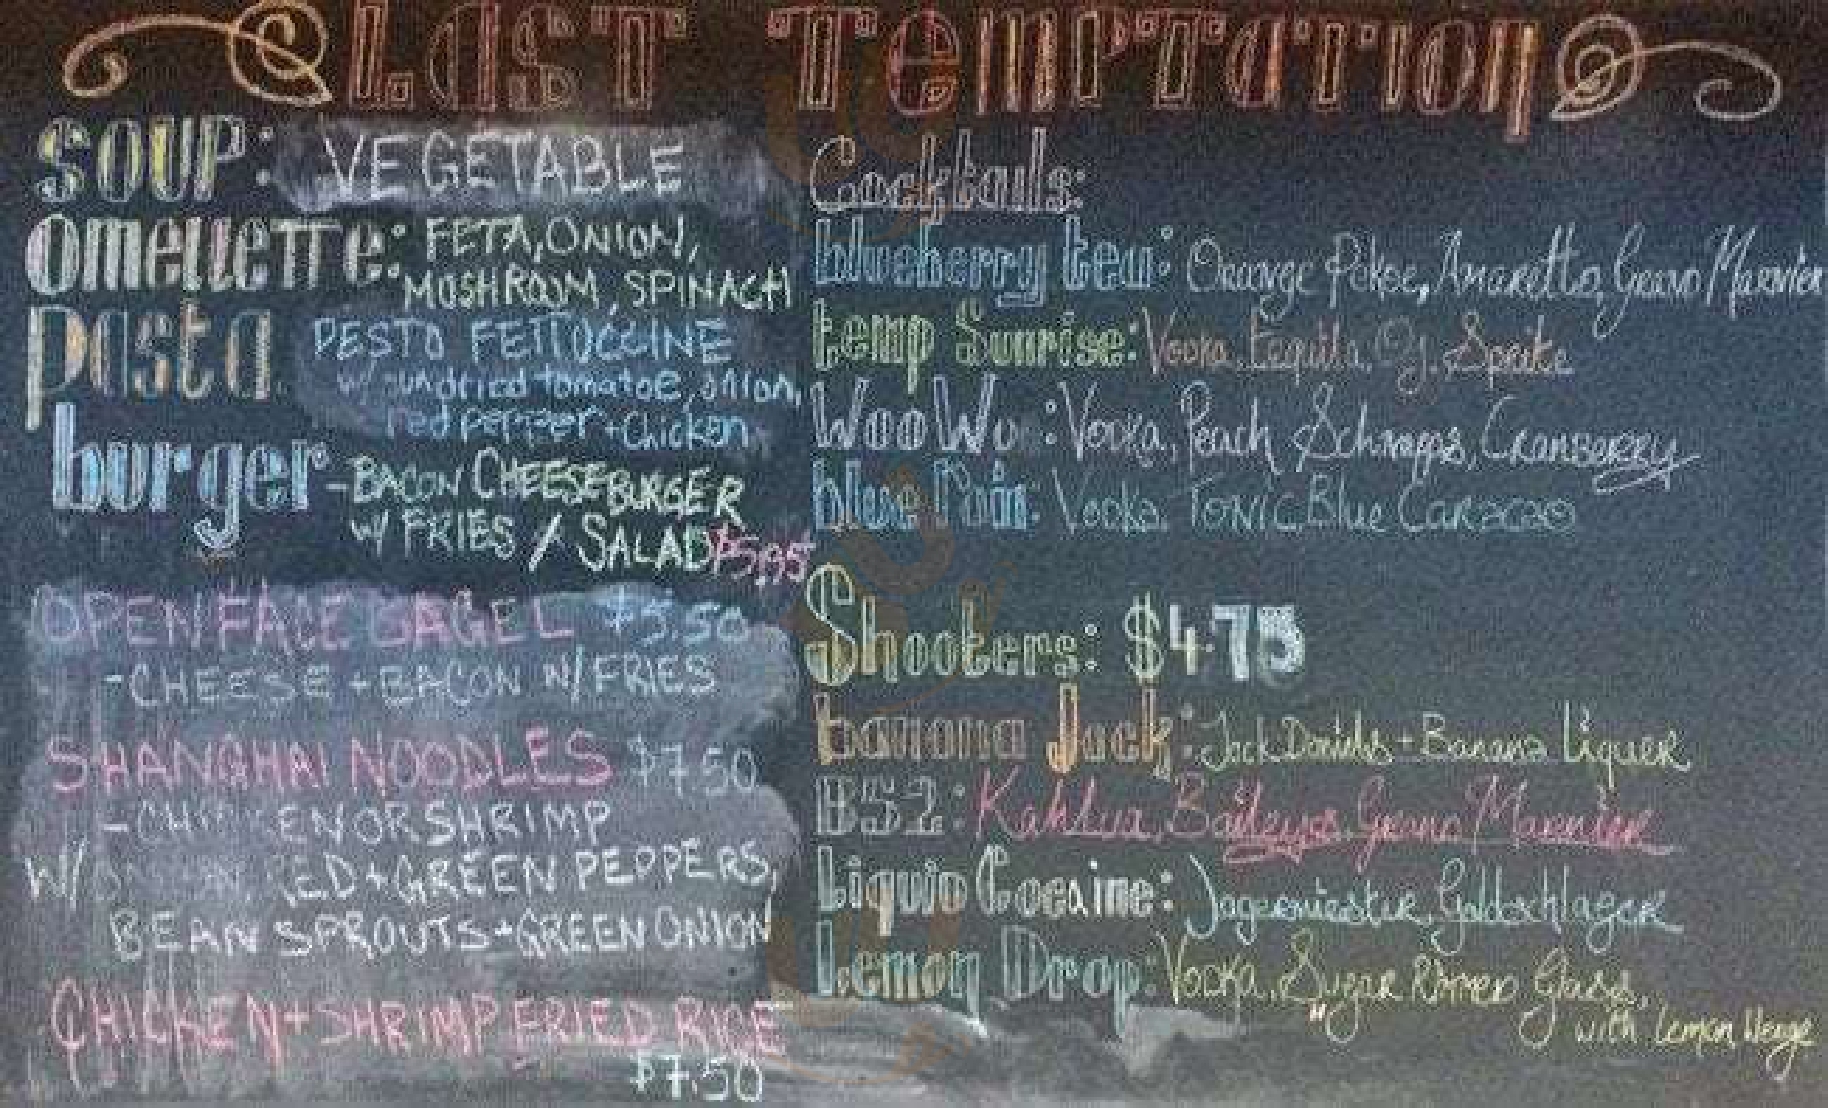 Last Temptation
SOUP: VEGETABLE
Omellette: FETA, ONION,
MUSHROOM, SPINACH
Pasta PESTO FETTUCCINE
w/ sundried tomatoe, onion,
red pepper + chicken
burger - BACON CHEESEBURGER
w/ FRIES / SALAD $5.95
OPEN FACE BAGEL $5.50
- CHEESE + BACON W/ FRIES
SHANGHAI NOODLES $7.50
- CHICKEN OR SHRIMP
W/ ONION, RED + GREEN PEPPERS,
BEAN SPROUTS + GREEN ONION
CHICKEN + SHRIMP FRIED RICE
$7.50
Cocktails:
blueberry tea: Orange Pekoe, Amaretto, Grand Marnier
temp Sunrise: Vodka, Tequila, OJ, Sprite
Woo Woo: Vodka, Peach Schnapps, Cranberry
blue Rain: Vodka, Tonic, Blue Caracao
Shooters: $4.75
banana Jack: Jack Daniels + Banana Liquer
B52: Kahlua, Baileys, Grand Marnier
Liquid Cocaine: Jagermiester, Goldschlager
Lemon Drop: Vodka, Sugar Rimmed Glass,
with Lemon Wedge